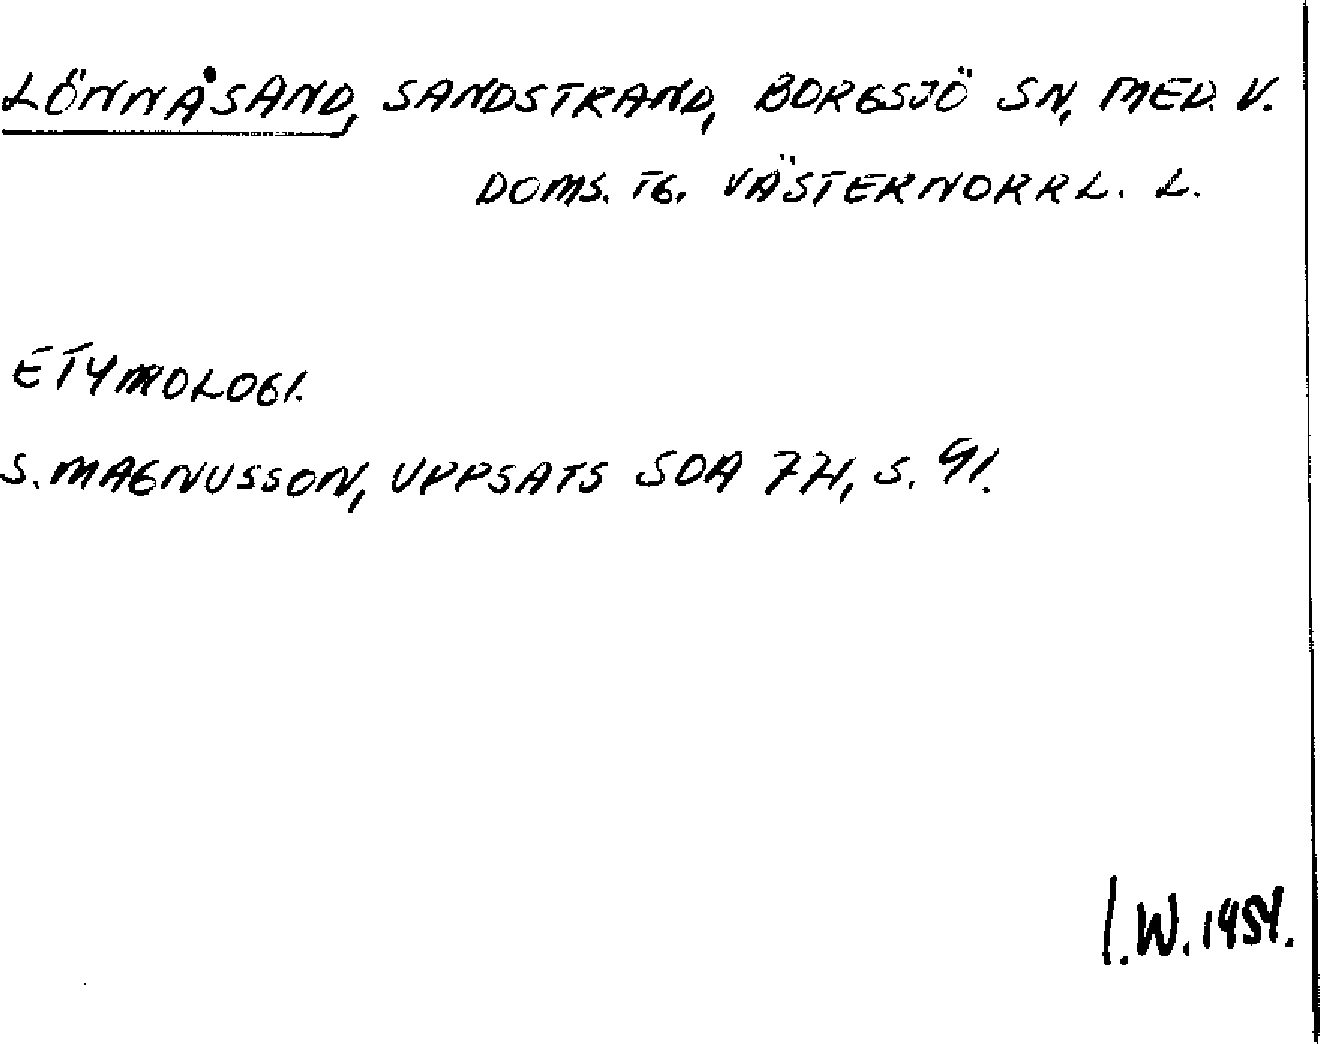 LÖNNÅSAND, SANDSTRAND, BORGSJÖ SN, MED. V.
DOMS. TG. VÄSTERNORRL. L.
ETYMOLOGI.
S. MAGNUSSON, UPPSATS SOA 774, S. 91.
I.W. 1954.